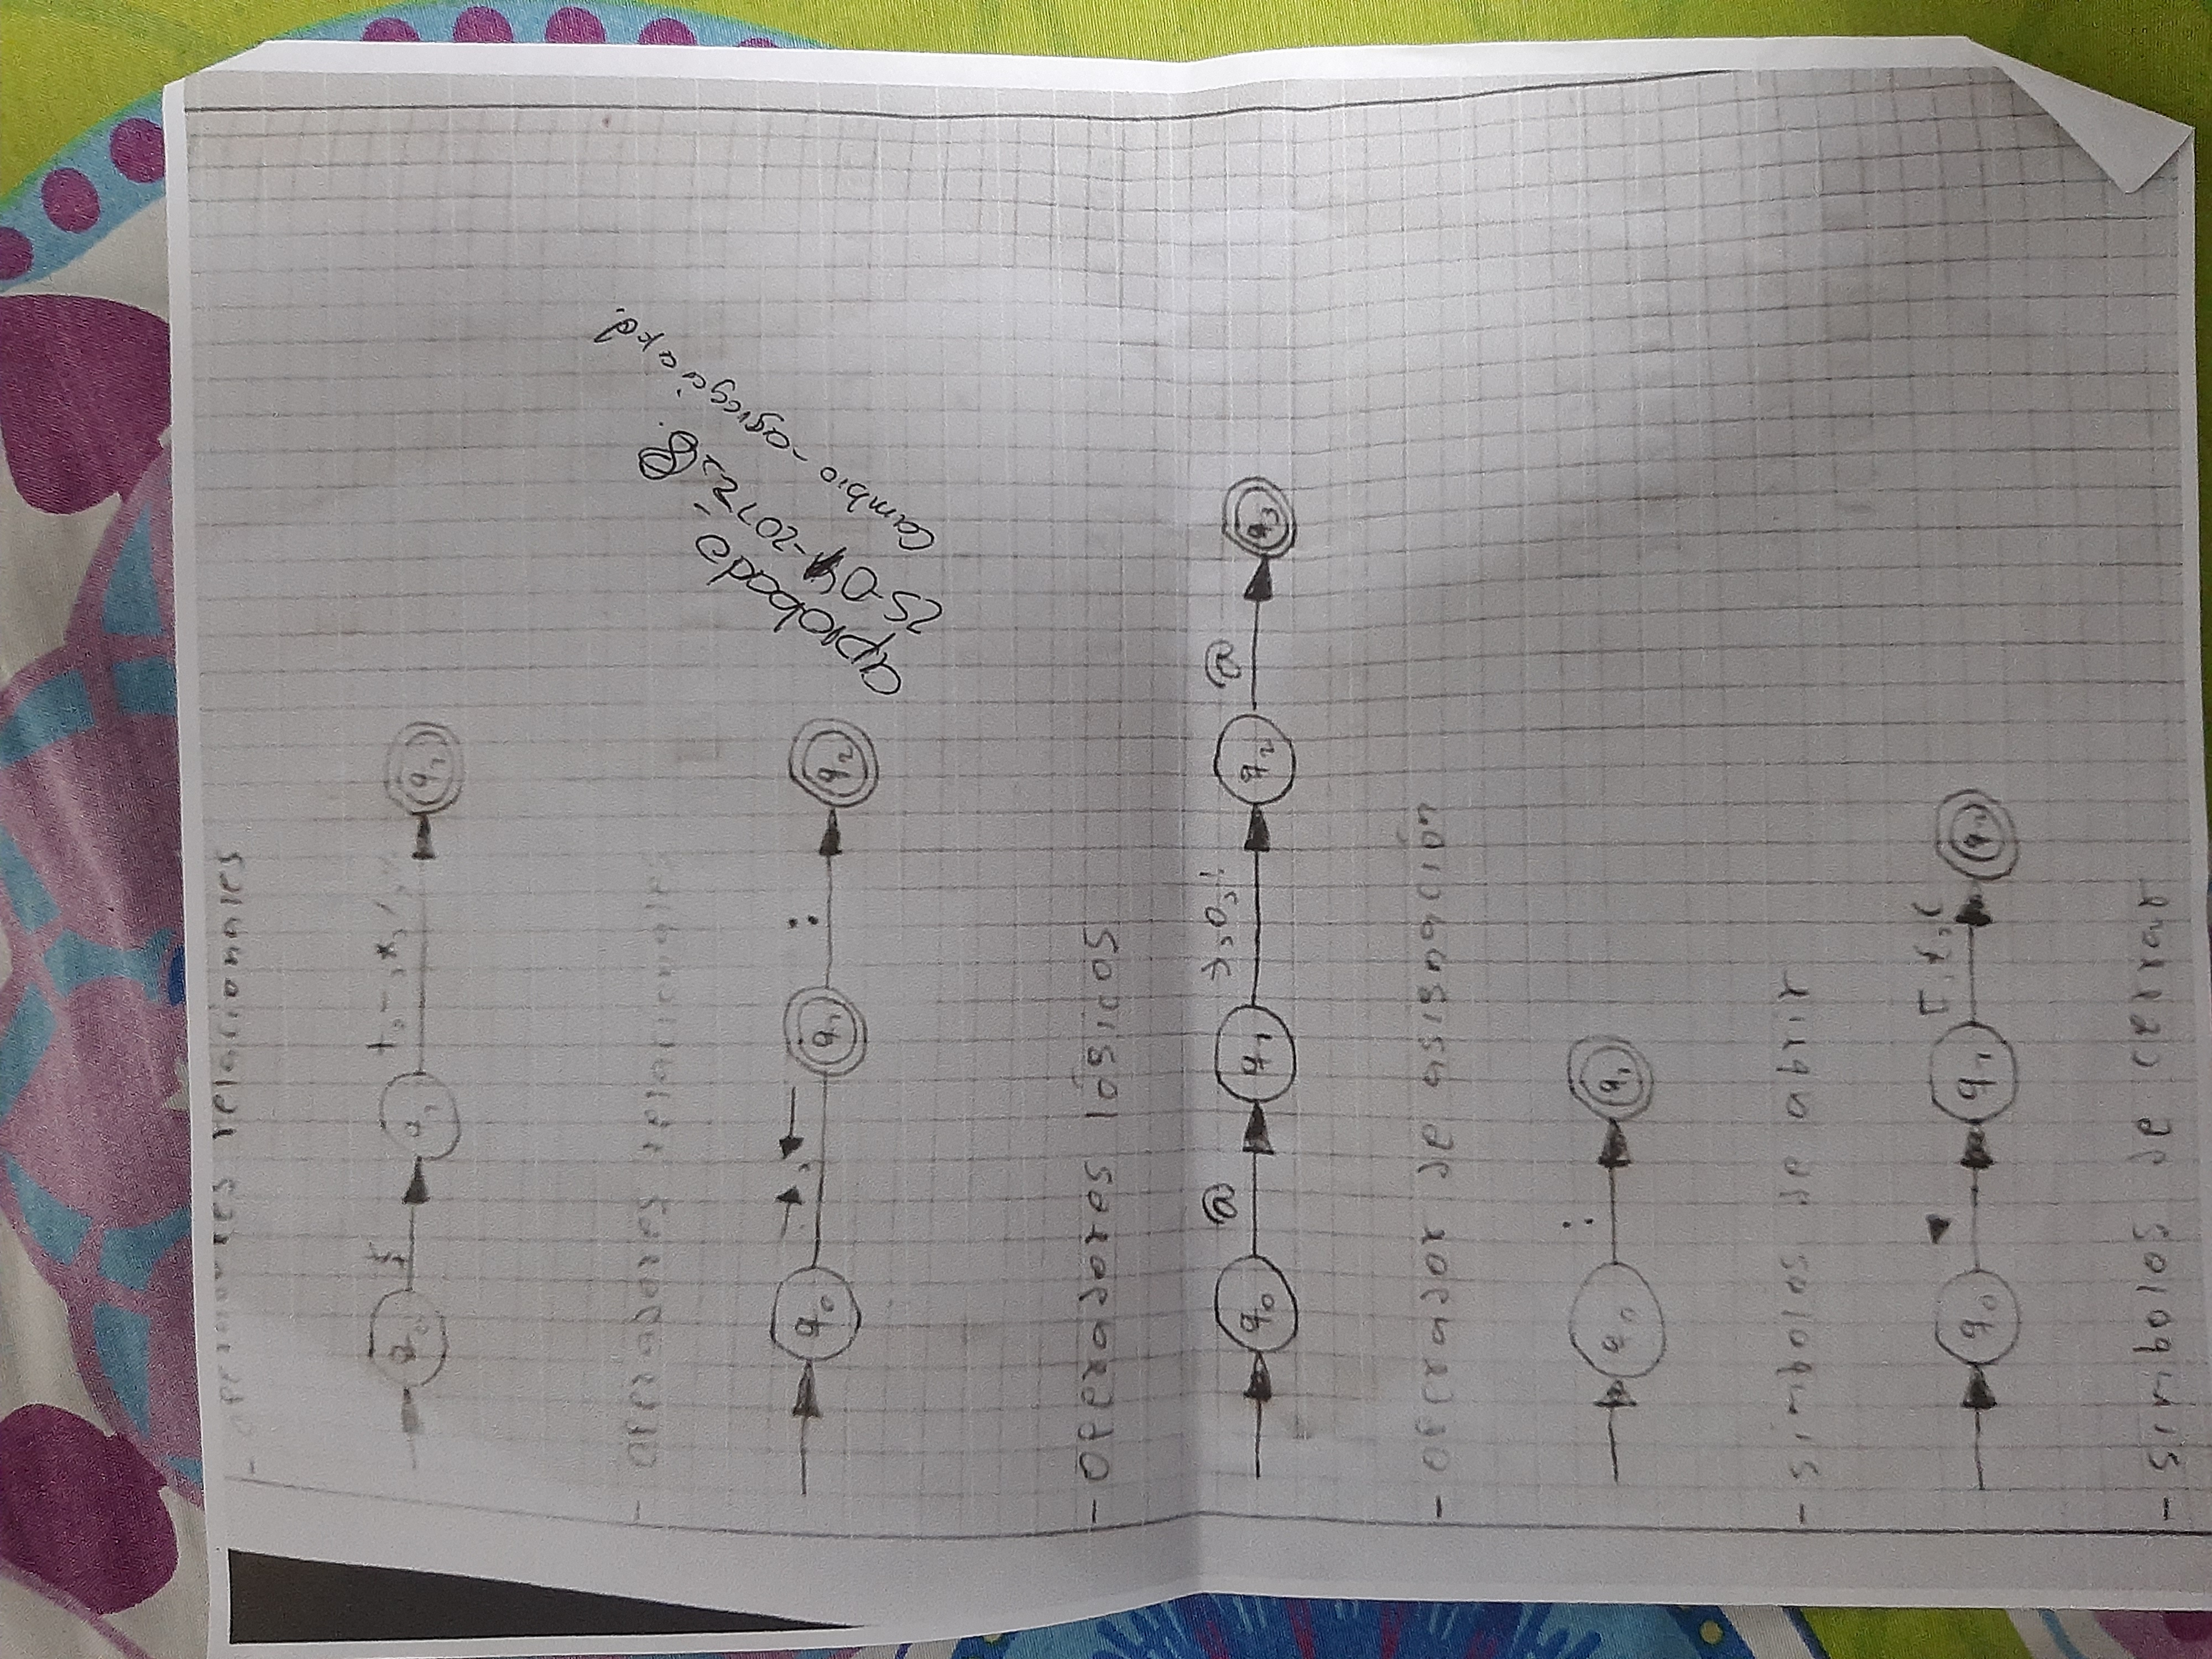 - operadores relacionales
q0 $ q1 +, -, *, /, % q2
- operadores relacionales
q0 →, ← q1 : q2
aprobado
Cambio - agregar
- operadores lógicos
q0 @ q1 y, o, ! q2 @ q3
- operador de asignación
q0 : q1
- simbolos de abrir
q0 q1 [, {, ( q2
- simbolos de cerrar